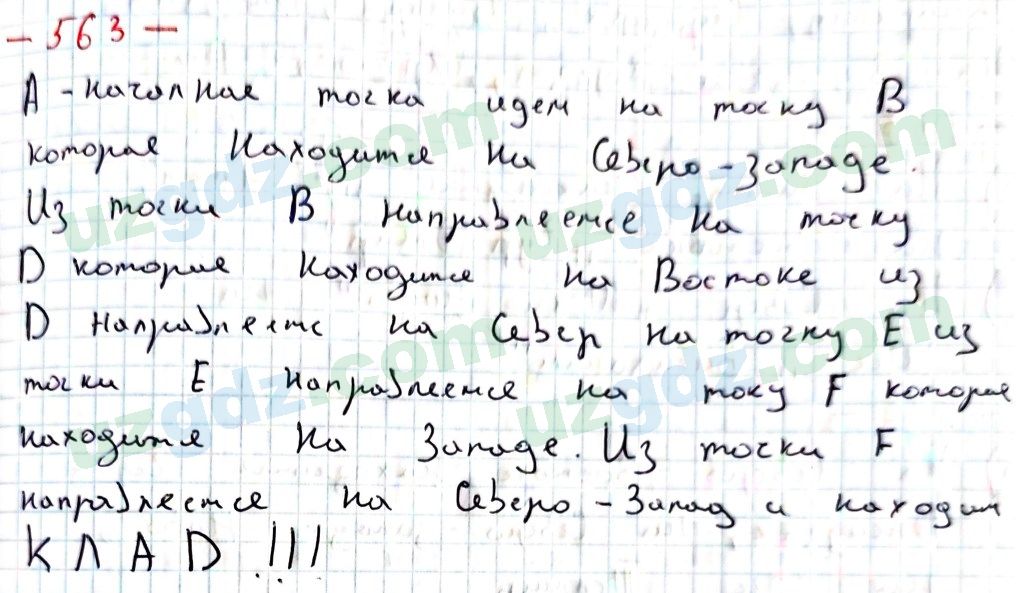 - 563 -
A - началная точка идем на точку B
которая находится на Северо-Западе.
Из точки B направляемся на точку
D которая находится на Востоке из
D направляемс на Север на точку E из
точки E направляемся на току F которая
находится на Западе. Из точки F
направляемся на Северо-Запад и находим
КЛАD!!!
uzgdz.com
uzgdz.com
uzgdz.com
uzgdz.com